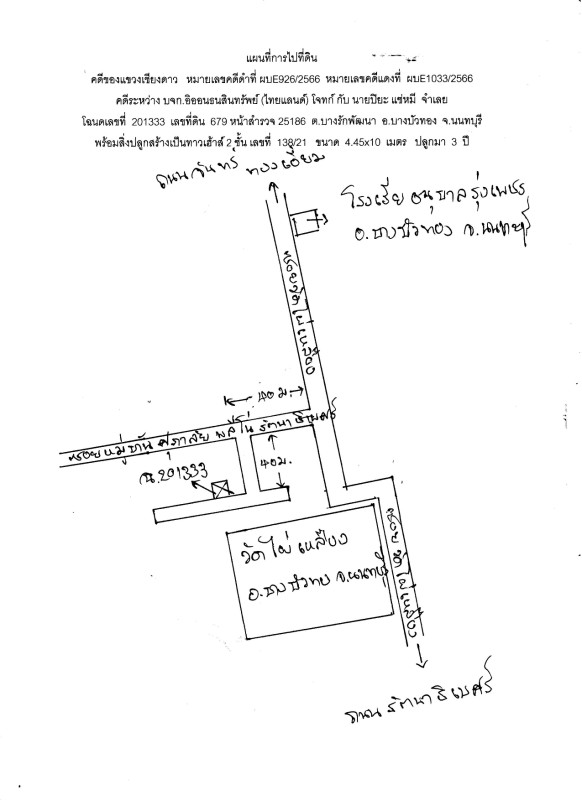 แผนที่การไปที่ดิน
คดีของแขวงเชียงดาว หมายเลขคดีดำที่ ผบE926/2566 หมายเลขคดีแดงที่ ผบE1033/2566
คดีระหว่าง บจก.อิออนธนสินทรัพย์ (ไทยแลนด์) โจทก์ กับ นายปิยะ แซ่หมี่ จำเลย
โฉนดเลขที่ 201333 เลขที่ดิน 679 หน้าสำรวจ 25186 ต.บางรักพัฒนา อ.บางบัวทอง จ.นนทบุรี
พร้อมสิ่งปลูกสร้างเป็นทาวเฮ้าส์ 2 ชั้น เลขที่ 138/21 ขนาด 4.45x10 เมตร ปลูกมา 3 ปี
ถนนจันทร์ทองเอี่ยม
โรงเรียนอนุบาลรุ่งเพชร
อ.บางบัวทอง จ.นนทบุรี
ซอยวัดไผ่เหลือง
40 ม.
ซอยหมู่บ้านศุภาลัย พลีโน่ รัตนาธิเบศร์
40 ม.
ฉ.201333
วัดไผ่เหลือง
อ.บางบัวทอง จ.นนทบุรี
ซอยวัดไผ่เหลือง
ถนนรัตนาธิเบศร์